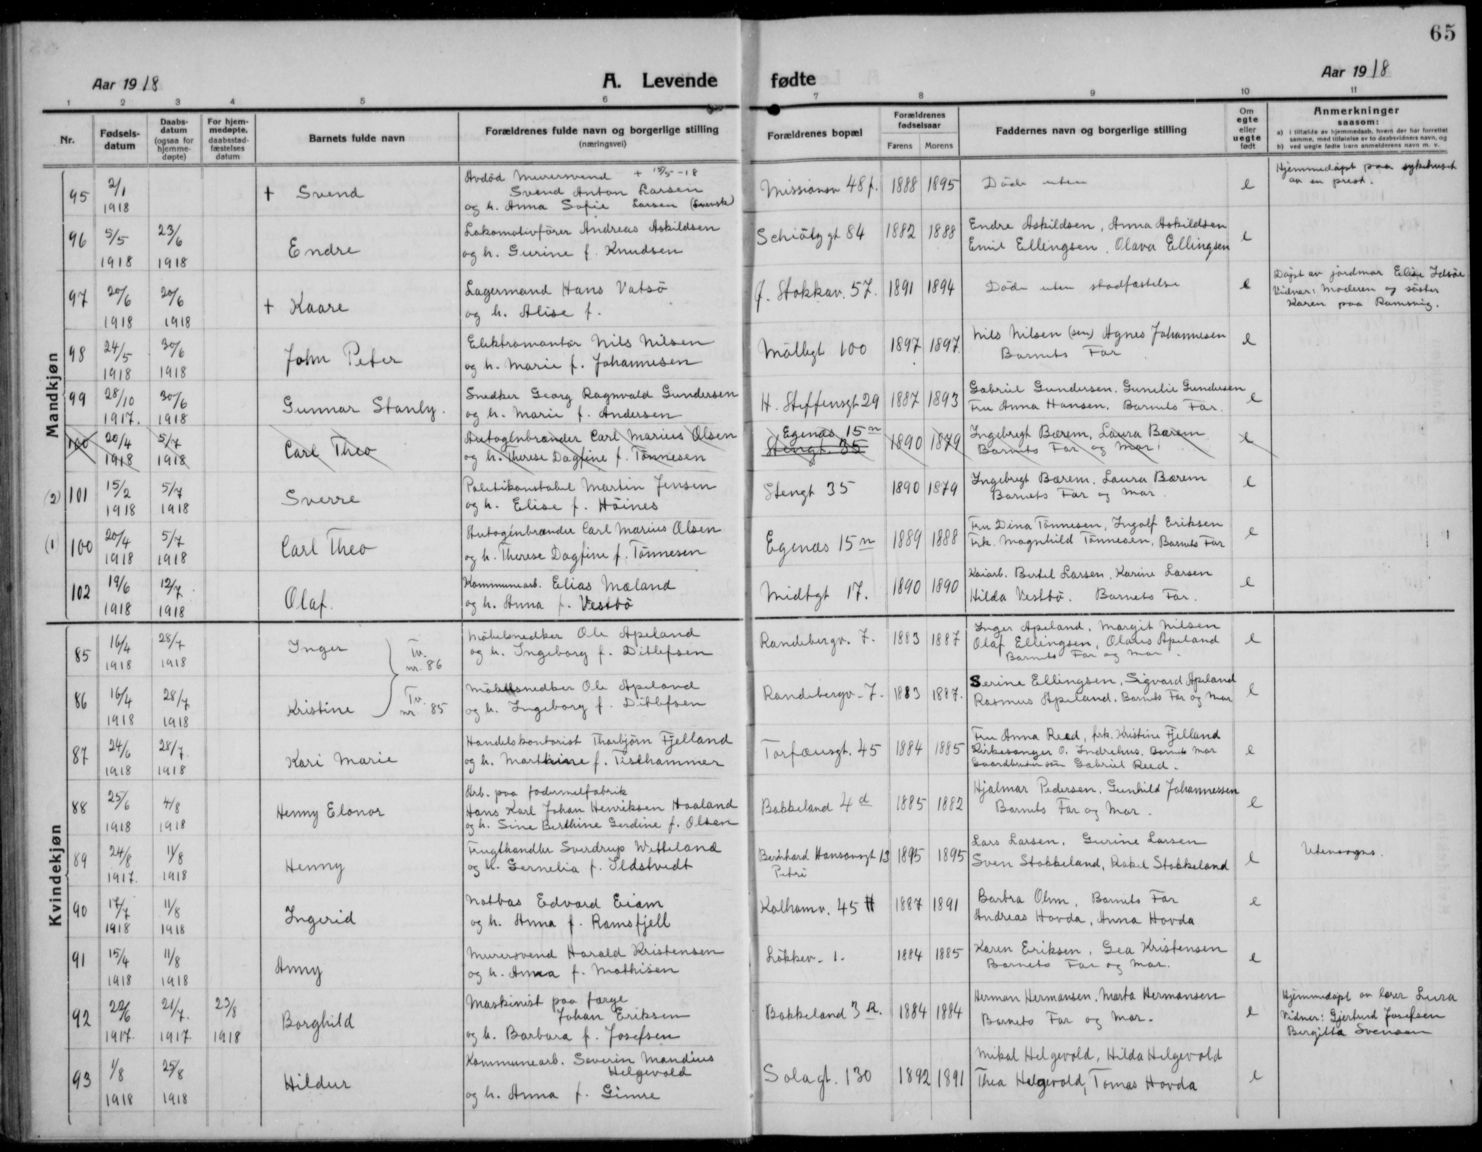 65
Aar 1918 A. Levende fødte Aar 1918
1 2 3 4 5 6 7 8 9 10 11
Nr. Fødsels-datum Daabs-datum (ogsaa for hjemme-døpte) For hjem-medøpte, daabsstad-fæstelses datum Barnets fulde navn Forældrenes fulde navn og borgerlige stilling (næringsvei) Forældrenes bopæl Forældrenes fødselsaar Farens Morens Faddernes navn og borgerlige stilling Om egte eller uegte født Anmerkninger saasom:
a) i tilfælde av hjemmedaab, hvem der har forrettet samme, med tilføielse av to daabsvidners navn, og
b) ved uegte fødte barn anmelderens navn m. v.
Mandkjøn
95 2/1 1918 + Svend
Avdød Murersvend + 15/5-18
Svend Anton Larsen
og h. Anna Sofie Larsen (svensk)
Missionsv 48 f. 1888 1895 Døde uten e
Hjemmedøpt paa sykehuset
av en prest.
96 5/5 1918 23/6 1918 Endre
Lokomotivfører Andreas Askildsen
og h. Gurine f. Knudsen
Schiøtzgt 84 1882 1888
Endre Askildsen, Anna Askildsen
Emil Ellingsen, Olava Ellingsen e
97 20/6 1918 20/6 1918 + Kaare
Lagermand Hans Vatsø
og h. Alise f.
Ø. Stokkav. 57. 1891 1894 Døde uten stadfæstelse e
Døpt av jordmor Elise Idsøe
Vidner: Moderen og søster
Karen paa Ramsvig.
98 24/5 1918 30/6 1918 John Peter
Elektromontør Nils Nilsen
og h. Marie f. Johannesen
Møllegt 100 1897 1897.
Nils Nilsen (sen) Agnes Johannesen
Barnets Far e
99 28/10 1917. 30/6 1918 Gunnar Stanly.
Snedker Georg Ragnvald Gundersen
og h. Marie f. Andersen
H. Steffensgt 29 1887 1893
Gabriel Gundersen. Gunelie Gundersen
Fru Anna Hansen. Barnets Far. e
100 20/4 1918 5/7 1918 Carl Theo
Autogénbrænder Carl Marius Olsen
og h. Therese Dagfine f. Tønnesen
Egenæs 15 n
Stengt. 35 1890 1879
Ingebregt Bærem, Laura Bærem
Barnets Far og Mor. e
(2) 101 15/2 1918 5/7 1918 Sverre
Politikonstabel Martin Jensen
og h. Elise f. Høines
Stengt 35 1890 1879
Ingebregt Bærem, Laura Bærem
Barnets Far og Mor. e
(1) 100 20/4 1918 5/7 1918 Carl Theo
Autogénbrænder Carl Marius Olsen
og h. Therese Dagfine f. Tønnesen
Egenæs 15 n 1889 1888
Fru Dina Tønnesen, Ingolf Eriksen
Frk. Magnhild Tønnesen, Barnets Far e
102 19/6 1918 12/7 1918 Olaf.
Kommunearb. Elias Mæland
og h. Anna f. Vestbø
Midtgt 17. 1890 1890
Kaiarb. Bertel Larsen. Karine Larsen
Hilda Vestbø. Barnets Far. e
Kvindekjøn
85 16/4 1918 28/7 1918 Inger Tv. nr. 86
Møbelsnedker Ole Apeland
og h. Ingeborg f. Ditlefsen
Randebergv. 7. 1883 1887
Inger Apeland, Margit Nilsen
Olaf Ellingsen, Olaus Apeland
Barnets Far og Mor. e
86 16/4 1918 28/7 1918 Kristine Tv. nr. 85
Møbelsnedker Ole Apeland
og h. Ingeborg f. Ditlefsen
Randebergv. 7. 1883 1887.
Serine Ellingsen, Sigvard Apeland
Rasmus Apeland. Barnets Far og Mor e
87 24/6 1918 28/7 1918 Kari Marie
Handelskontorist Thorbjørn Fjelland
og h. Marthine f. Tisthammer
Torfæusgt. 45 1884 1885
Fru Anna Reed, frk. Kristine Fjelland
Kirkesanger O. Indrehus. Barnets Mor
Gabriel Reed. e
88 25/6 1918 4/8 1918 Henny Elonor
Arb. paa fodermelfabrik
Hans Karl Johan Henriksen Haaland
og h. Sine Berthine Gerdine f. Olsen
Bakkeland 4 d 1885 1882
Hjalmar Pedersen. Gunhild Johannessen
Barnets Far og Mor. e
89 24/8 1917. 11/8 1918 Henny
Frugthandler Sverdrup Wetteland
og h. Gernelia f. Ildstvedt
Bernhard Hansensgt 13
Petri 1895 1895
Lars Larsen, Gurine Larsen
Sven Stokkeland, Rakel Stokkeland e
Utensogns.
90 17/7 1918 11/8 1918 Ingerid
Notbas Edvard Eiam
og h. Anna f. Ramsfjell
Kalhamv. 45 H 1887 1891
Barbra Ohm, Barnets Far
Andreas Hovda, Anna Hovda e
91 15/4 1918 11/8 1918 Anny
Murersvend Harald Kristensen
og h. Anna f. Mathisen
Løkkev. 1. 1884 1885
Karen Eriksen, Gea Kristensen
Barnets Far og Mor. e
92 22/6 1917. 21/7. 1917. 23/8 1918 Borghild
Maskinist paa færge
Johan Eriksen
og h. Barbara f. Josefsen
Bakkeland 3 a. 1884 1884
Herman Hermansen. Marta Hermansen
Barnets Far og Mor. e
Hjemmedøpt av lærer Lura
Vidner: Gjertrud Josefsen
Bergitta Svensen
93 1/8 1918 25/8 1918 Hildur
Kommunearb. Severin Mandius
Helgevold
og h. Anna f. Gimre
Solagt. 130 1892 1891
Mikal Helgevold, Hilda Helgevold
Thea Helgevold, Tomas Hovda e